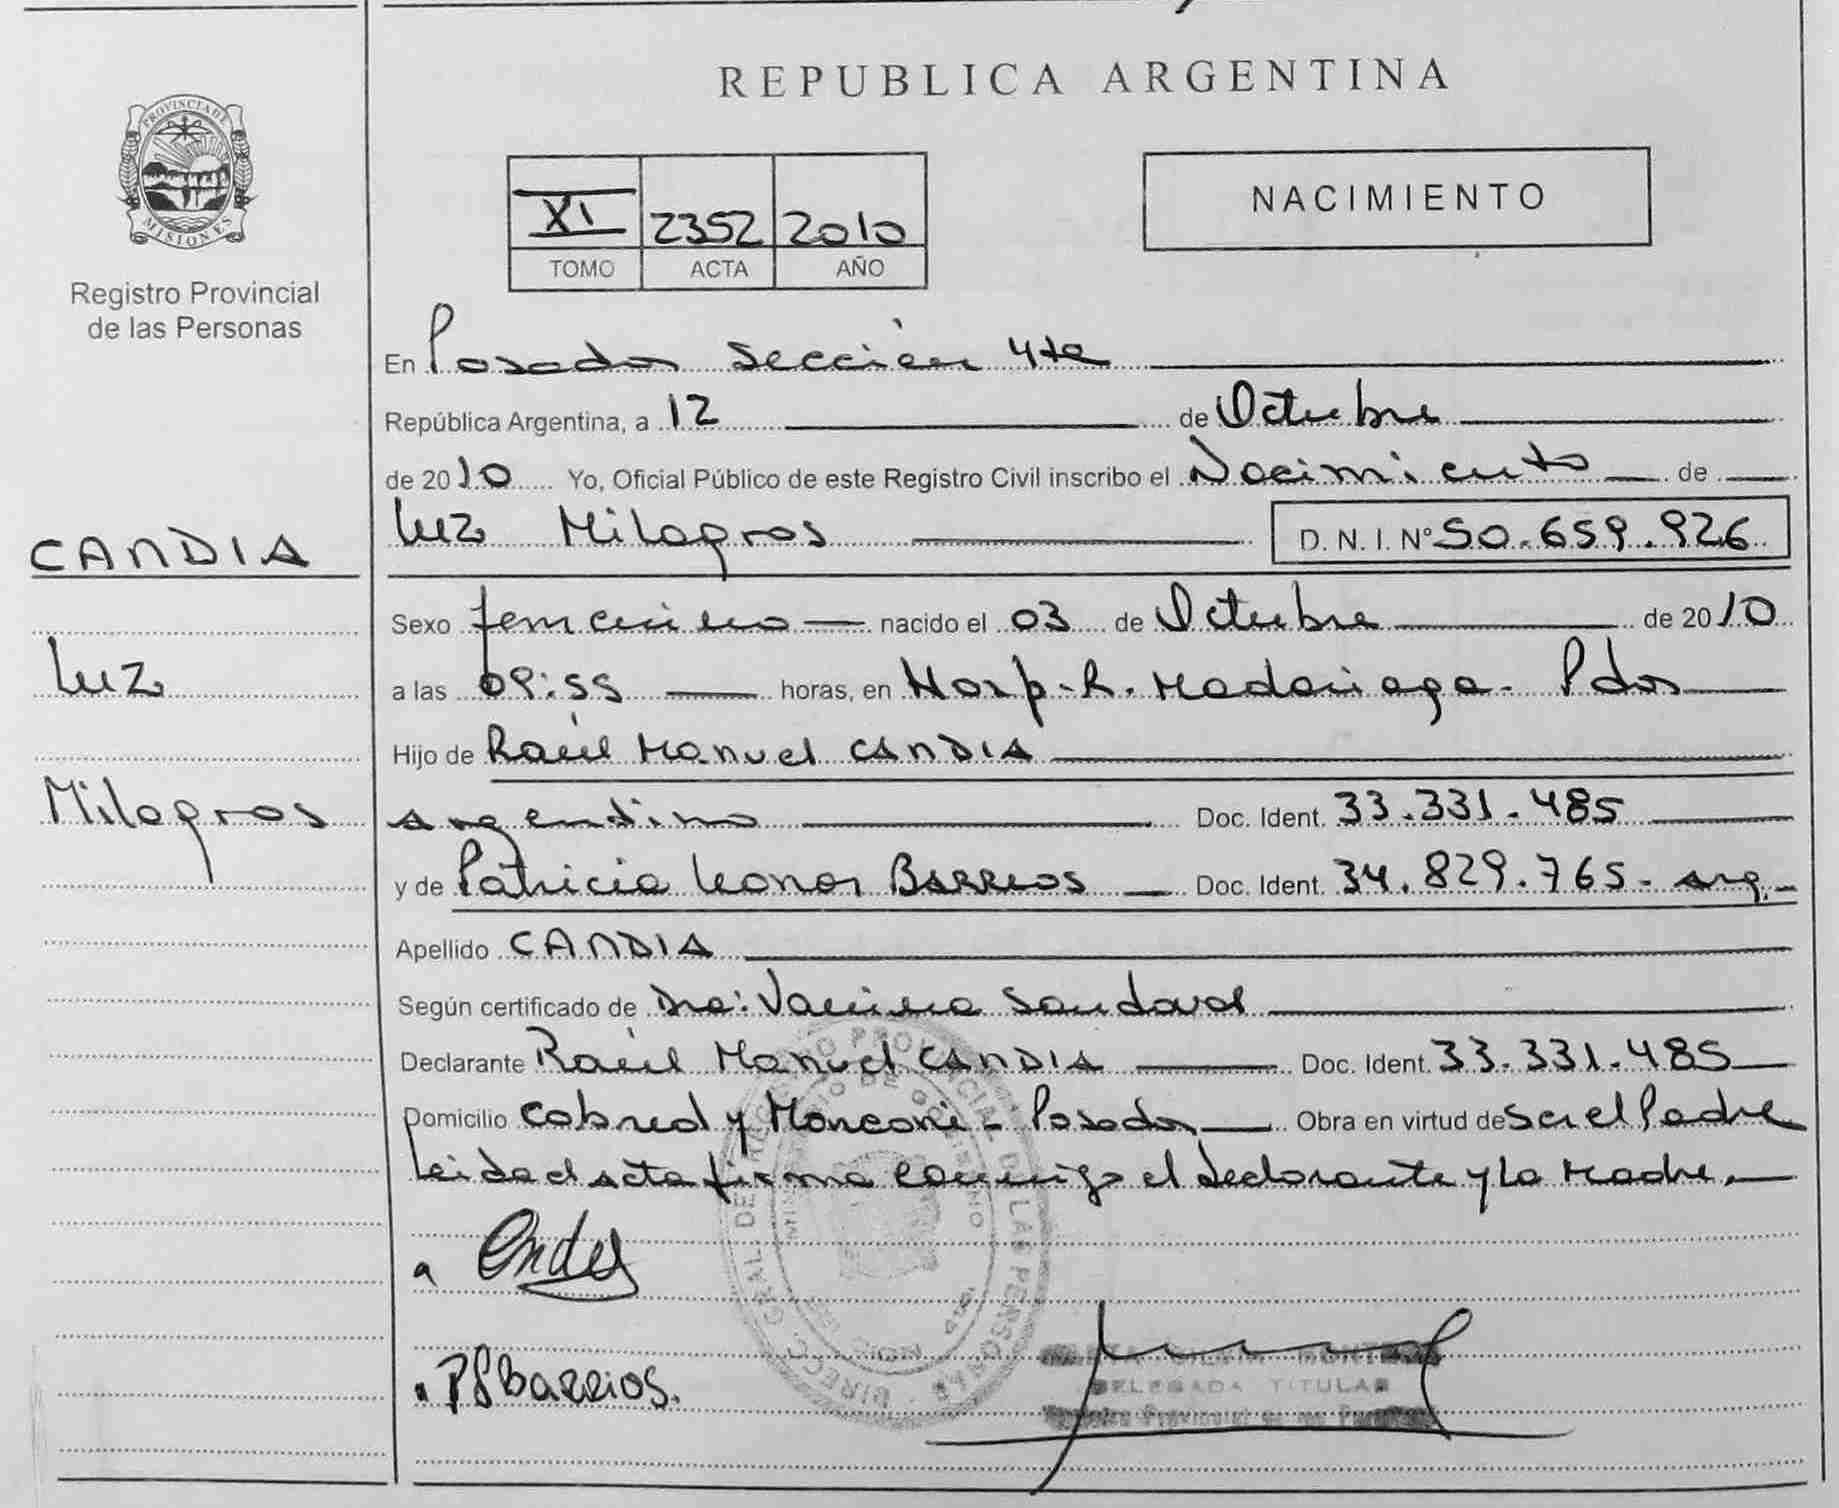 REPUBLICA ARGENTINA
PROVINCIA DE
MISIONES
Registro Provincial
de las Personas
XI 2352 2010
TOMO ACTA AÑO
NACIMIENTO
En Posadas Sección 4ta
República Argentina, a 12 de Octubre
de 2010 Yo, Oficial Público de este Registro Civil inscribo el Nacimiento de
Luz Milagros D. N. I. N° 50.659.926
CANDIA
Luz
Milagros
Sexo femenino nacido el 03 de Octubre de 2010
a las 09:55 horas, en Hosp. R. Madariaga - Pdas
Hijo de Raúl Manuel CANDIA
Argentino Doc. Ident. 33.331.485
y de Patricia Leonor BARRIOS Doc. Ident. 34.829.765 - Arg.-
Apellido CANDIA
Según certificado de Dra: Vanina Sandoval
Declarante Raúl Manuel CANDIA Doc. Ident. 33.331.485
Domicilio Cabred y - Posadas Obra en virtud de Ser el Padre
Leida el acta firma conmigo el declarante y la Madre.
PBarrios.
DELEGADA TITULAR
Registro Provincial de las Personas
DIRECC. GRAL. DE REGISTRO PROVINCIAL DE LAS PERSONAS